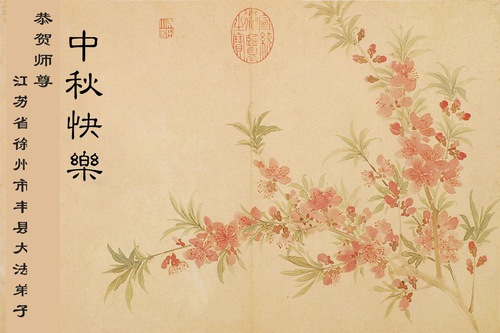 恭贺师尊
中秋快樂
江苏省徐州市丰县大法弟子